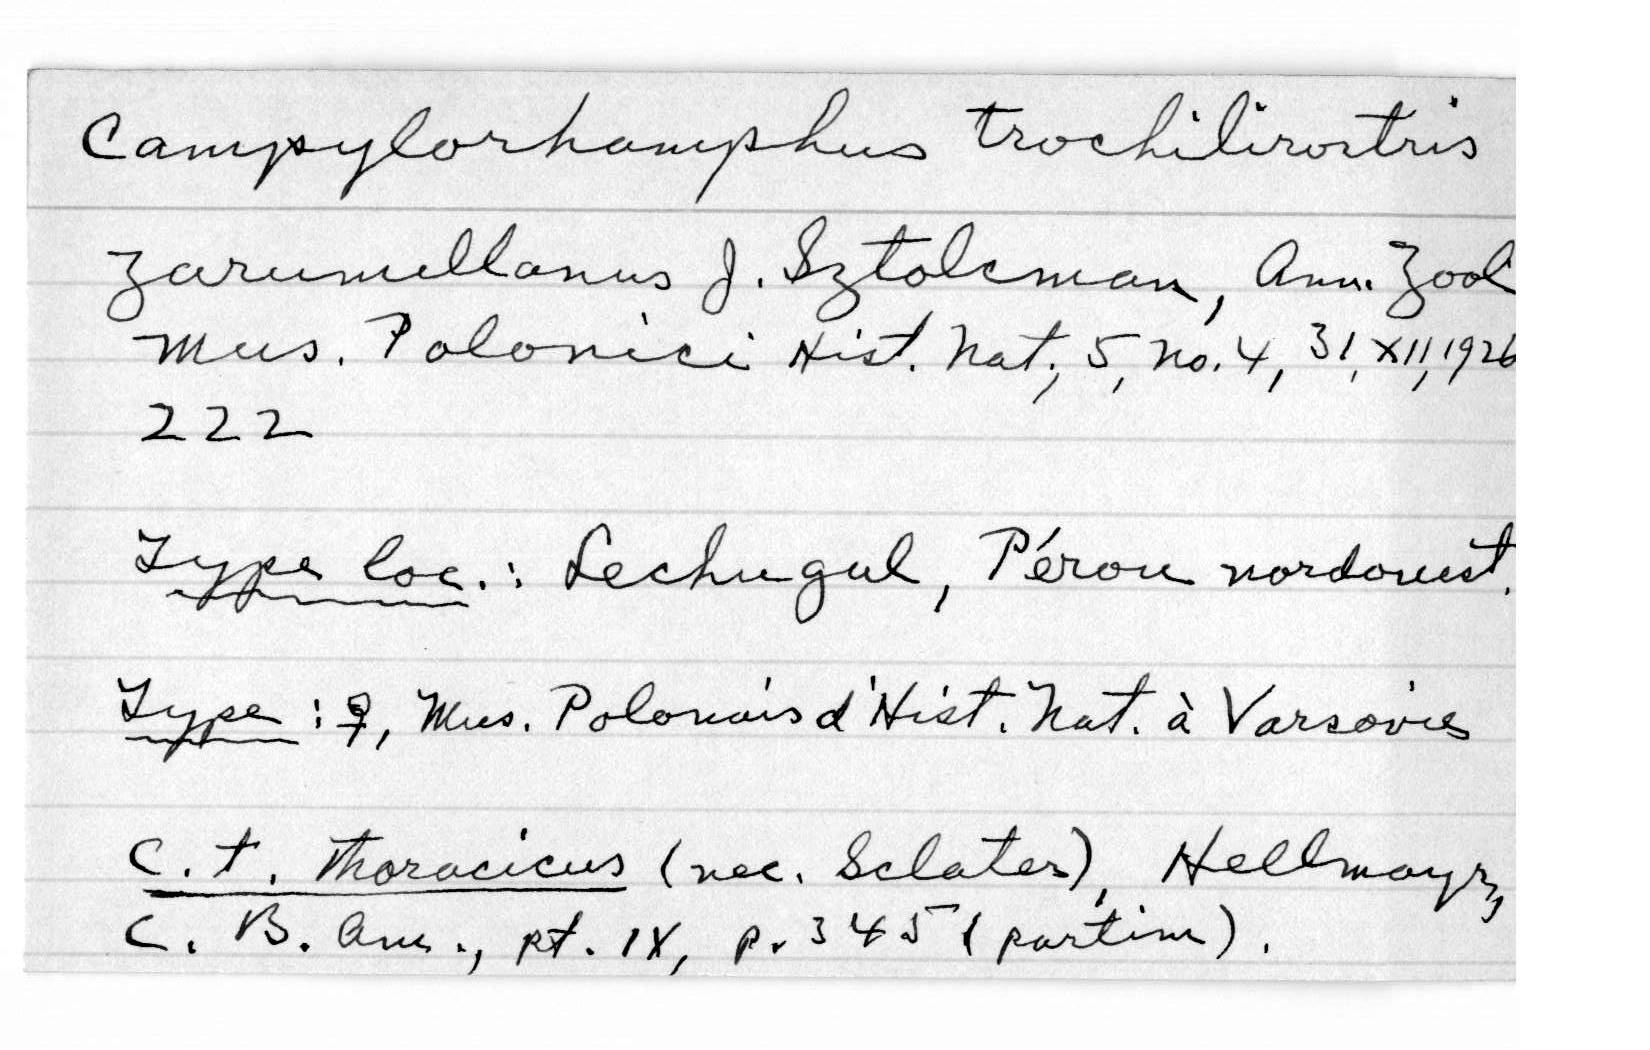 Campylorhamphus trochilirostris
zarumillanus J. Sztolcman, Ann. Zool
Mus. Polonici Hist. Nat., 5, no. 4, 31, XII, 1926
222
Type loc.: Lechugal, Pérou nordouest.
Type: ♀, Mus. Polonais d'Hist. Nat. à Varsovie
C. t. thoracicus (nec. Sclater), Hellmayr,
C. B. Am., pt. IX, p. 345 (partim).